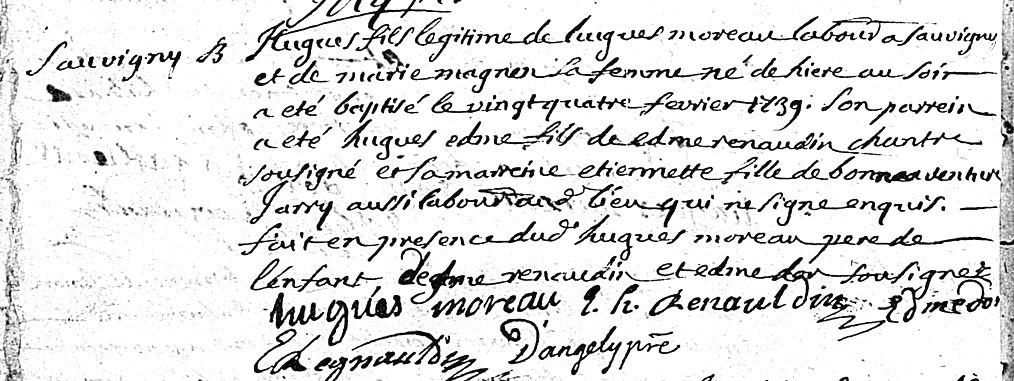 Sauvigny B
Hugues fils legitime de hugues moreau labour a Sauvigny
et de marie magnen sa femme né de hiere au soir
a eté baptisé le vingt quatre fevrier 1739. Son parrein
a eté hugues edme fils de edme renaudin chantre
sousigné et sa marreine etiennette fille de bonnaventure
Jarry aussi labour aud lieu qui ne signe enquis.
fait en presence dud hugues moreau pere de
lenfant, dedme renaudin et edme dor sousignez
hugués moreau E. h. Renauldin Edme dor
E Regnauldin Dangely pre